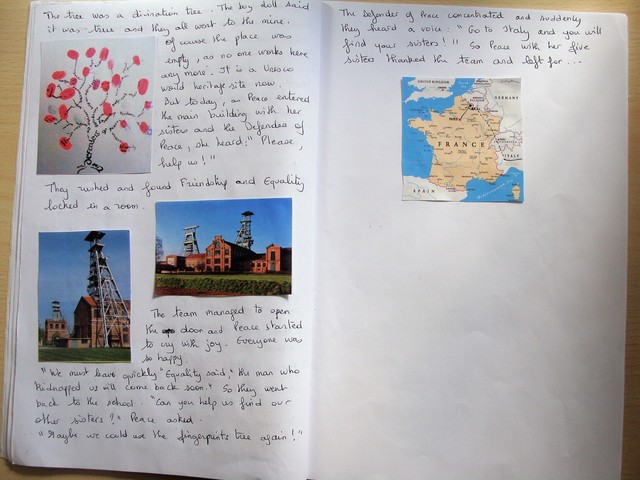 The tree was a divination tree. The boy doll said
it was true and they all went to the mine.
Of course the place was
empty, as no one works here
any more. It is a Unesco
world heritage site now.
But today, as Peace entered
the main building with her
sisters and the Defender of
Peace, she heard: "Please,
help us!"
They rushed and found Friendship and Equality
locked in a room.
The team managed to open
the door and Peace started
to cry with joy. Everyone was
so happy.
"We must leave quickly" Equality said, "the man who
kidnapped us will come back soon." So they went
back to the school. "Can you help us find our
other sisters?" Peace asked.
"Maybe we could use the fingerprints tree again!"
The Defender of Peace concentrated and suddenly
they heard a voice: "Go to Italy and you will
find your sisters!" So Peace with her five
sisters thanked the team and left for...
UNITED KINGDOM
GERMANY
PARIS
FRANCE
ITALY
SPAIN